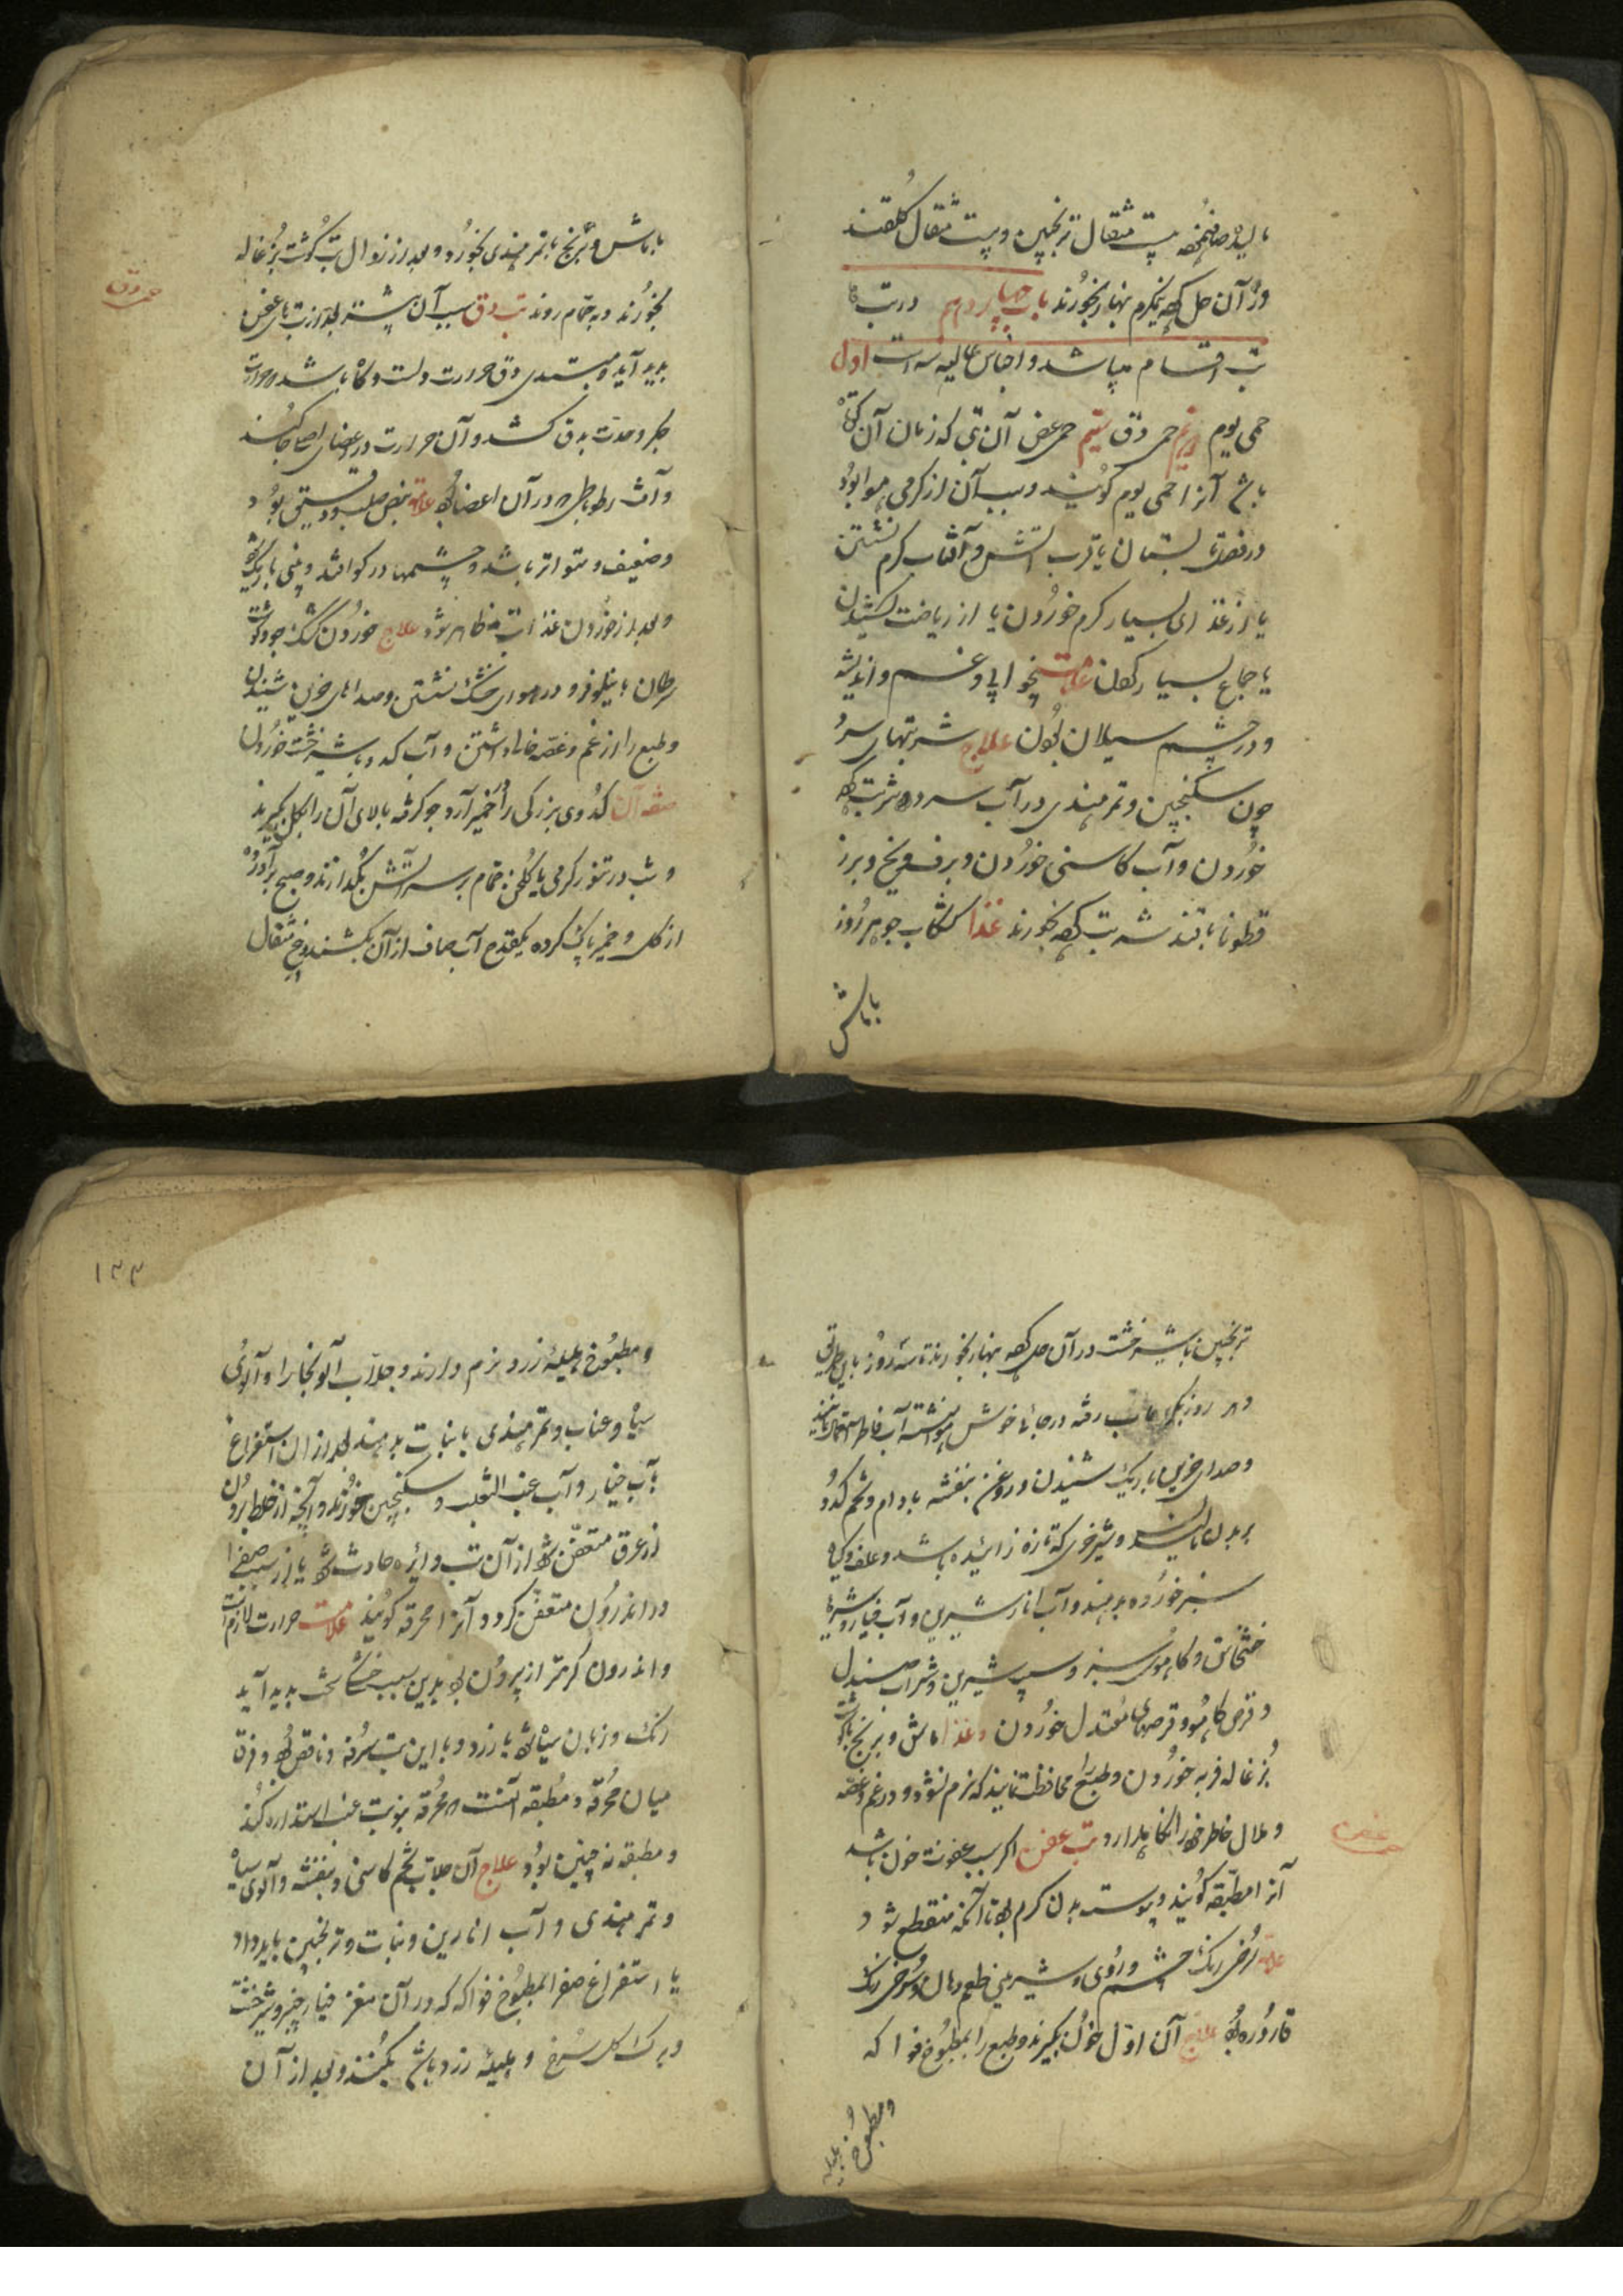 مالیده صاف نموده بیست مثقال ترنجبین و بیست مثقال گلقند
در آن حل کرده نیمگرم نهار بخورند باب چهاردهم در تب
تب اقسام میباشد و اجناس عالیه سه است اول
حمی یوم دویم حمی دق سیم حمی عفن آن تبی که زمان آن
باشد آنرا حمی یوم گویند و سبب آن از گرمی هوا بود
در فصل تابستان یا قرب آتش و آفتاب گرم نشستن
یا از غذای بسیار گرم خوردن یا از ریاضت کشیدن
یا جماع بسیار کردن علامت بیخوابی و غم و اندیشه
و در چشم سیلان بودن علاج شربتهای سرد
چون سکنجبین و تمر هندی در آب سرد شربت کرده
خوردن و آب کاسنی خوردن و برف و یخ و بزر
قطونا با قند شربت کرده بخورند غذا کشکاب جو هر روز
با ماش
با ماش و برنج با تمر هندی بخورد و بعد از زوال تب گوشت بزغاله
بخورند و به حمام روند تب دق سبب آن بیشتر بعد از تب های عفن
حمی دق
پدید آید و مبتدی دق حرارت
جگر و معدت بدق کشد و آن حرارت در اعضای
و آن رطوباتی که در آن اعضا بود علامت نبض صلب و دقیق بود
و ضعیف و متواتر باشد و چشمها در گو افتد و بینی باریک
و بعد از خوردن غذا تب ظاهر شود علاج خوردن کشک جو و گوشت
سرطان با نیلوفر و در هوای خنک نشستن و صداهای حزین شنیدن
و طبع را از غم و غصه خالی داشتن و آب کدو با شیرخشت خوردن
صفت آن کدوی بزرگی را خمیر آرد جو گرفته بالای آن را بگل گیرند
و شب در تنور گرمی یا گلخن حمام بر سر آتش بگذارند و صبح برآورده
از گل و خمیر پاک کرده یکقدح آب صاف از آن بکشند و پنج مثقال
ترنجبین با شیرخشت در آن حل کرده نهار بخورند تا سه روز باین طریق
و هر روز رفته در جای خوش هوا نشسته آب فاطر
و صدای حزین باریک شنیدن و روغن بنفشه بادام و تخم کدو
بر بدن مالیدن و شیر خری که تازه زائیده باشد و علف و گیاه
سبز خورده بدهند و آب انار شیرین و آب خیار و شربت
خشخاش و کاهوی سبز و سیب شیرین و شراب صندل
و قرص کاهو و قرصهای معتدل خوردن و غذا ماش و برنج با گوشت
بزغاله فربه خوردن و طبع را محافظت نمایند که نرم نشود و در غم و غصه
و ملال خاطر خود را نگاهدارد تب عفن اگر سبب عفونت خون باشد
عفن
آنرا مطبقه گویند و پیوسته بدن گرم بود تا آنکه منقطع شود
علامت سرخی رنگ چشم و روی و شیرینی طعم دهان و سرخی رنگ
قاروره بود علاج آن اول خون بگیرند و طبع را بمطبوخ فواکه
و مطبوخ هلیله
۱۳۳
و مطبوخ هلیله زرد نرم دارند و جلاب آلو بخارا و آلوی
سیاه و عناب و تمر هندی با نبات بدهند بعد از ان استفراغ
بآب خیار و آب عنب الثعلب و سکنجبین خورند و آنچه از خلط برون
از عرق متعفن شود از آن تب دایره حادث شود یا از سبب صفرا
در اندرون متعفن گردد و آنرا محرقه گویند علامت حرارت لازم است
و اندرون گرمتر از بیرون بود بدین سبب پدید آید
رنگ و زبان سیاه شود یا زرد و با این تب سرفه و ناقص بود و فرق
میان محرقه و مطبقه آنست که محرقه بنوبت غب اشتداد کند
و مطبقه نه چنین بود علاج آن جلاب تخم کاسنی و بنفشه و آلوی سیاه
و تمر هندی و آب انارین و نبات و ترنجبین باید داد
یا استفراغ صفرا بمطبوخ فواکه که در آن مغز خیارچنبر و شیرخشت
و برگ گل سرخ و هلیله زرد باشد بکنند و بعد از آن